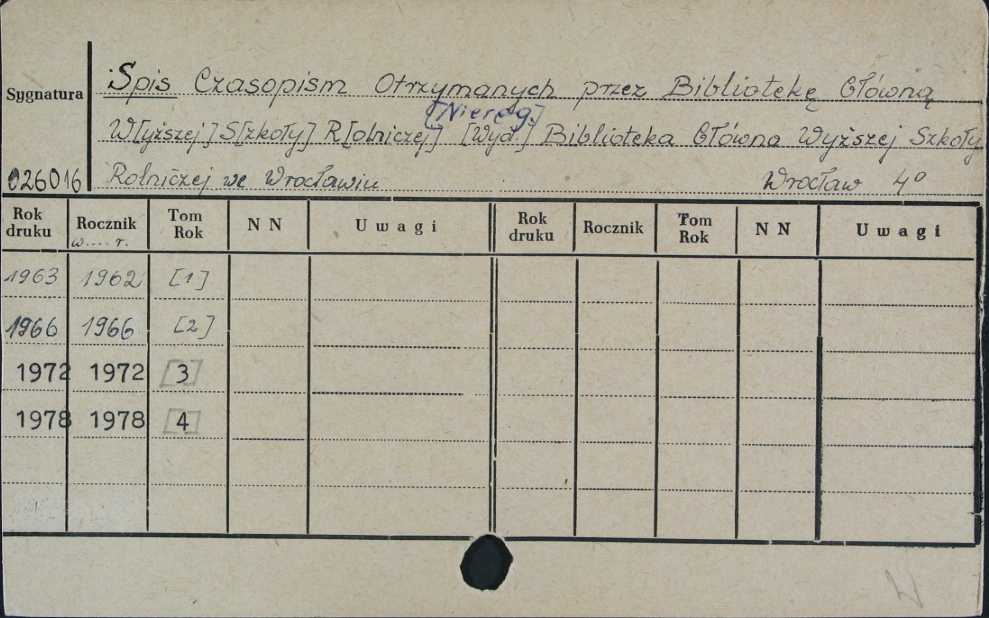 Sygnatura
Spis Czasopism Otrzymanych przez Bibliotekę Główną
[Niereg.]
W[yższej] S[zkoły] R[olniczej] [Wyd.] Biblioteka Główna Wyższej Szkoły
026016 Rolniczej we Wrocławiu Wrocław 4º
Rok druku Rocznik Tom Rok NN Uwagi Rok druku Rocznik Tom Rok NN Uwagi
w.... r.
1963 1962 [1]
1966 1966 [2]
1972 1972 [3]
1978 1978 [4]